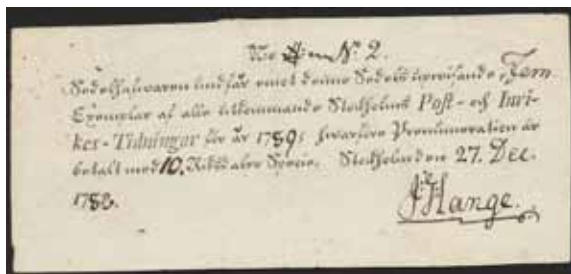 No. 2.
Sedelhafwaren undfår emot denne Sedels upwisande Fem
Exemplar af alla utkommande Stockholms Post- och Inri-
kes-Tidningar för år 1789; hwarföre Prenumeration är
betalt med 10. Riksdaler Specie. Stockholm den 27. Dec.
1788.
Hange.